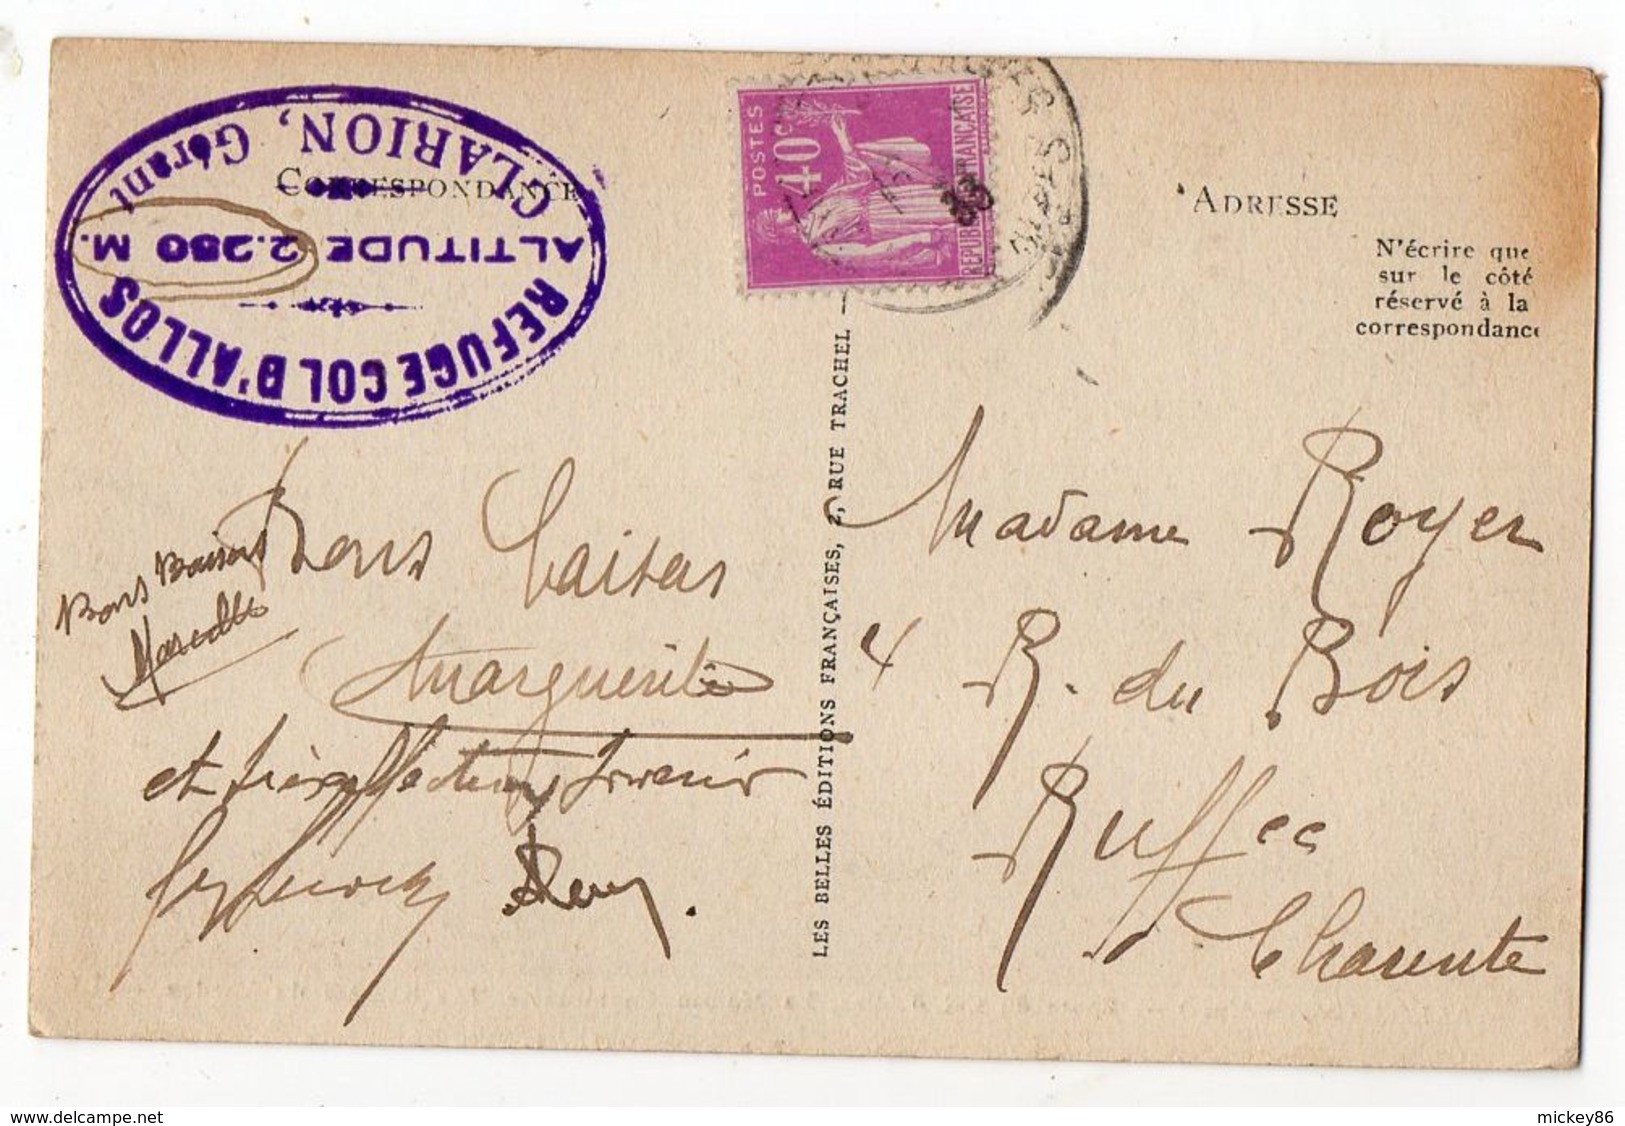 REFUGE COL D'ALLOS
ALTITUDE 2.250 M.
CLARION, Gérant
CORRESPONDANCE
POSTES
40c
REPUBLIQUE FRANÇAISE
33
ADRESSE
N'écrire que
sur le côté
réservé à la
correspondance
LES BELLES ÉDITIONS FRANÇAISES, 2, RUE TRACHEL
Bons Baisers
Marcelle
Bons baisers
Marguerite
et très affectueux souvenir
Madame Royer
4 R. du Bois
Ruffec
Charente
www.delcampe.net
mickey86